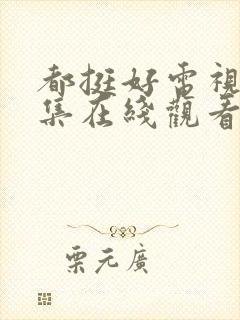 都挺好電視
集在綫觀看
栗元廣